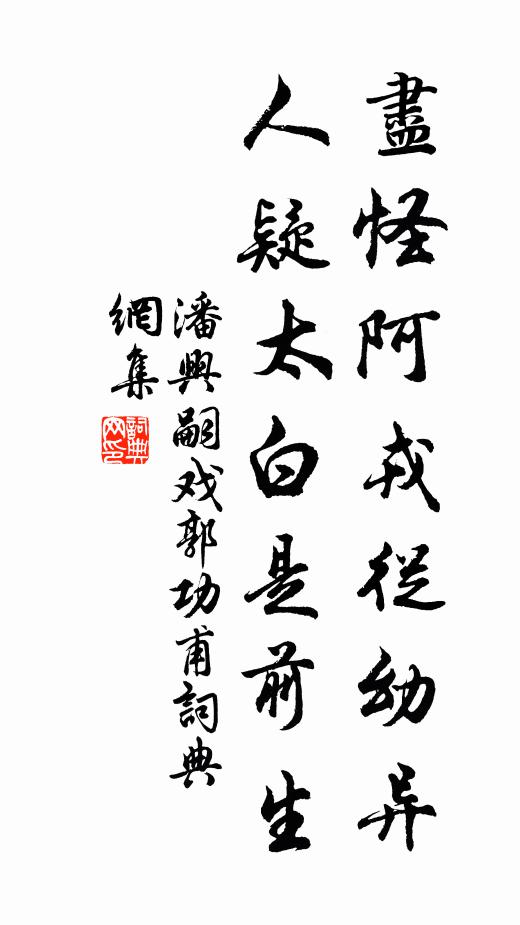 盡怪阿戎從幼异
人疑太白是前生
潘興嗣戏郭功甫詞典
網集
詞典
网印